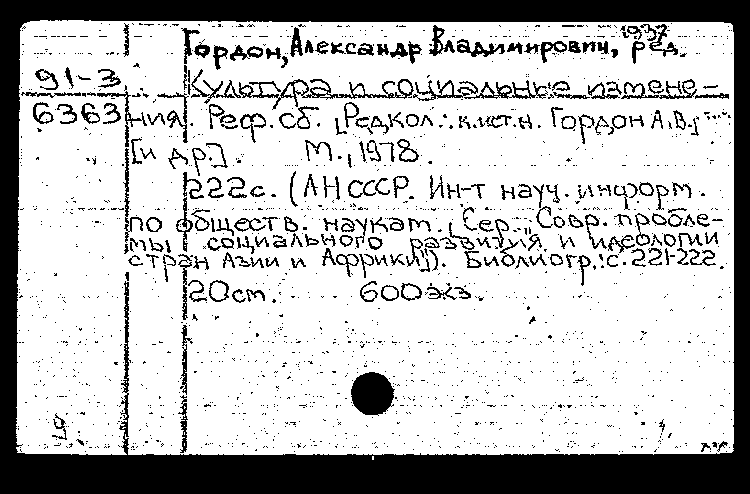 1937
Гордон, Александр Владимирович, ред.
91-3
Культура и социальные измене-
6363
ния. Реф. сб. [Редкол.: к.ист.н. Гордон А.В.,
[и др.]. М., 1978.
222с. (АН СССР. Ин-т науч. информ.
по обществ. наукам. Сер. "Совр. пробле-
мы социального развития и идеологии
стран Азии и Африки"). Библиогр.: с. 221-222.
20см. 600 экз.